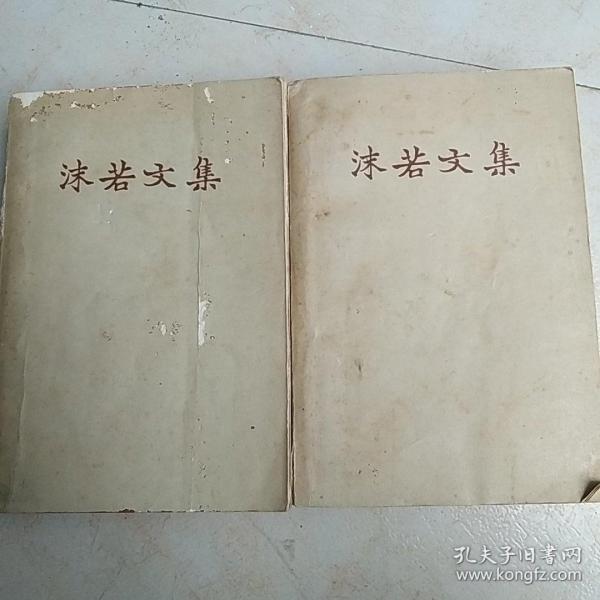 沫若文集
沫若文集
孔夫子旧書网
www.kongfz.com